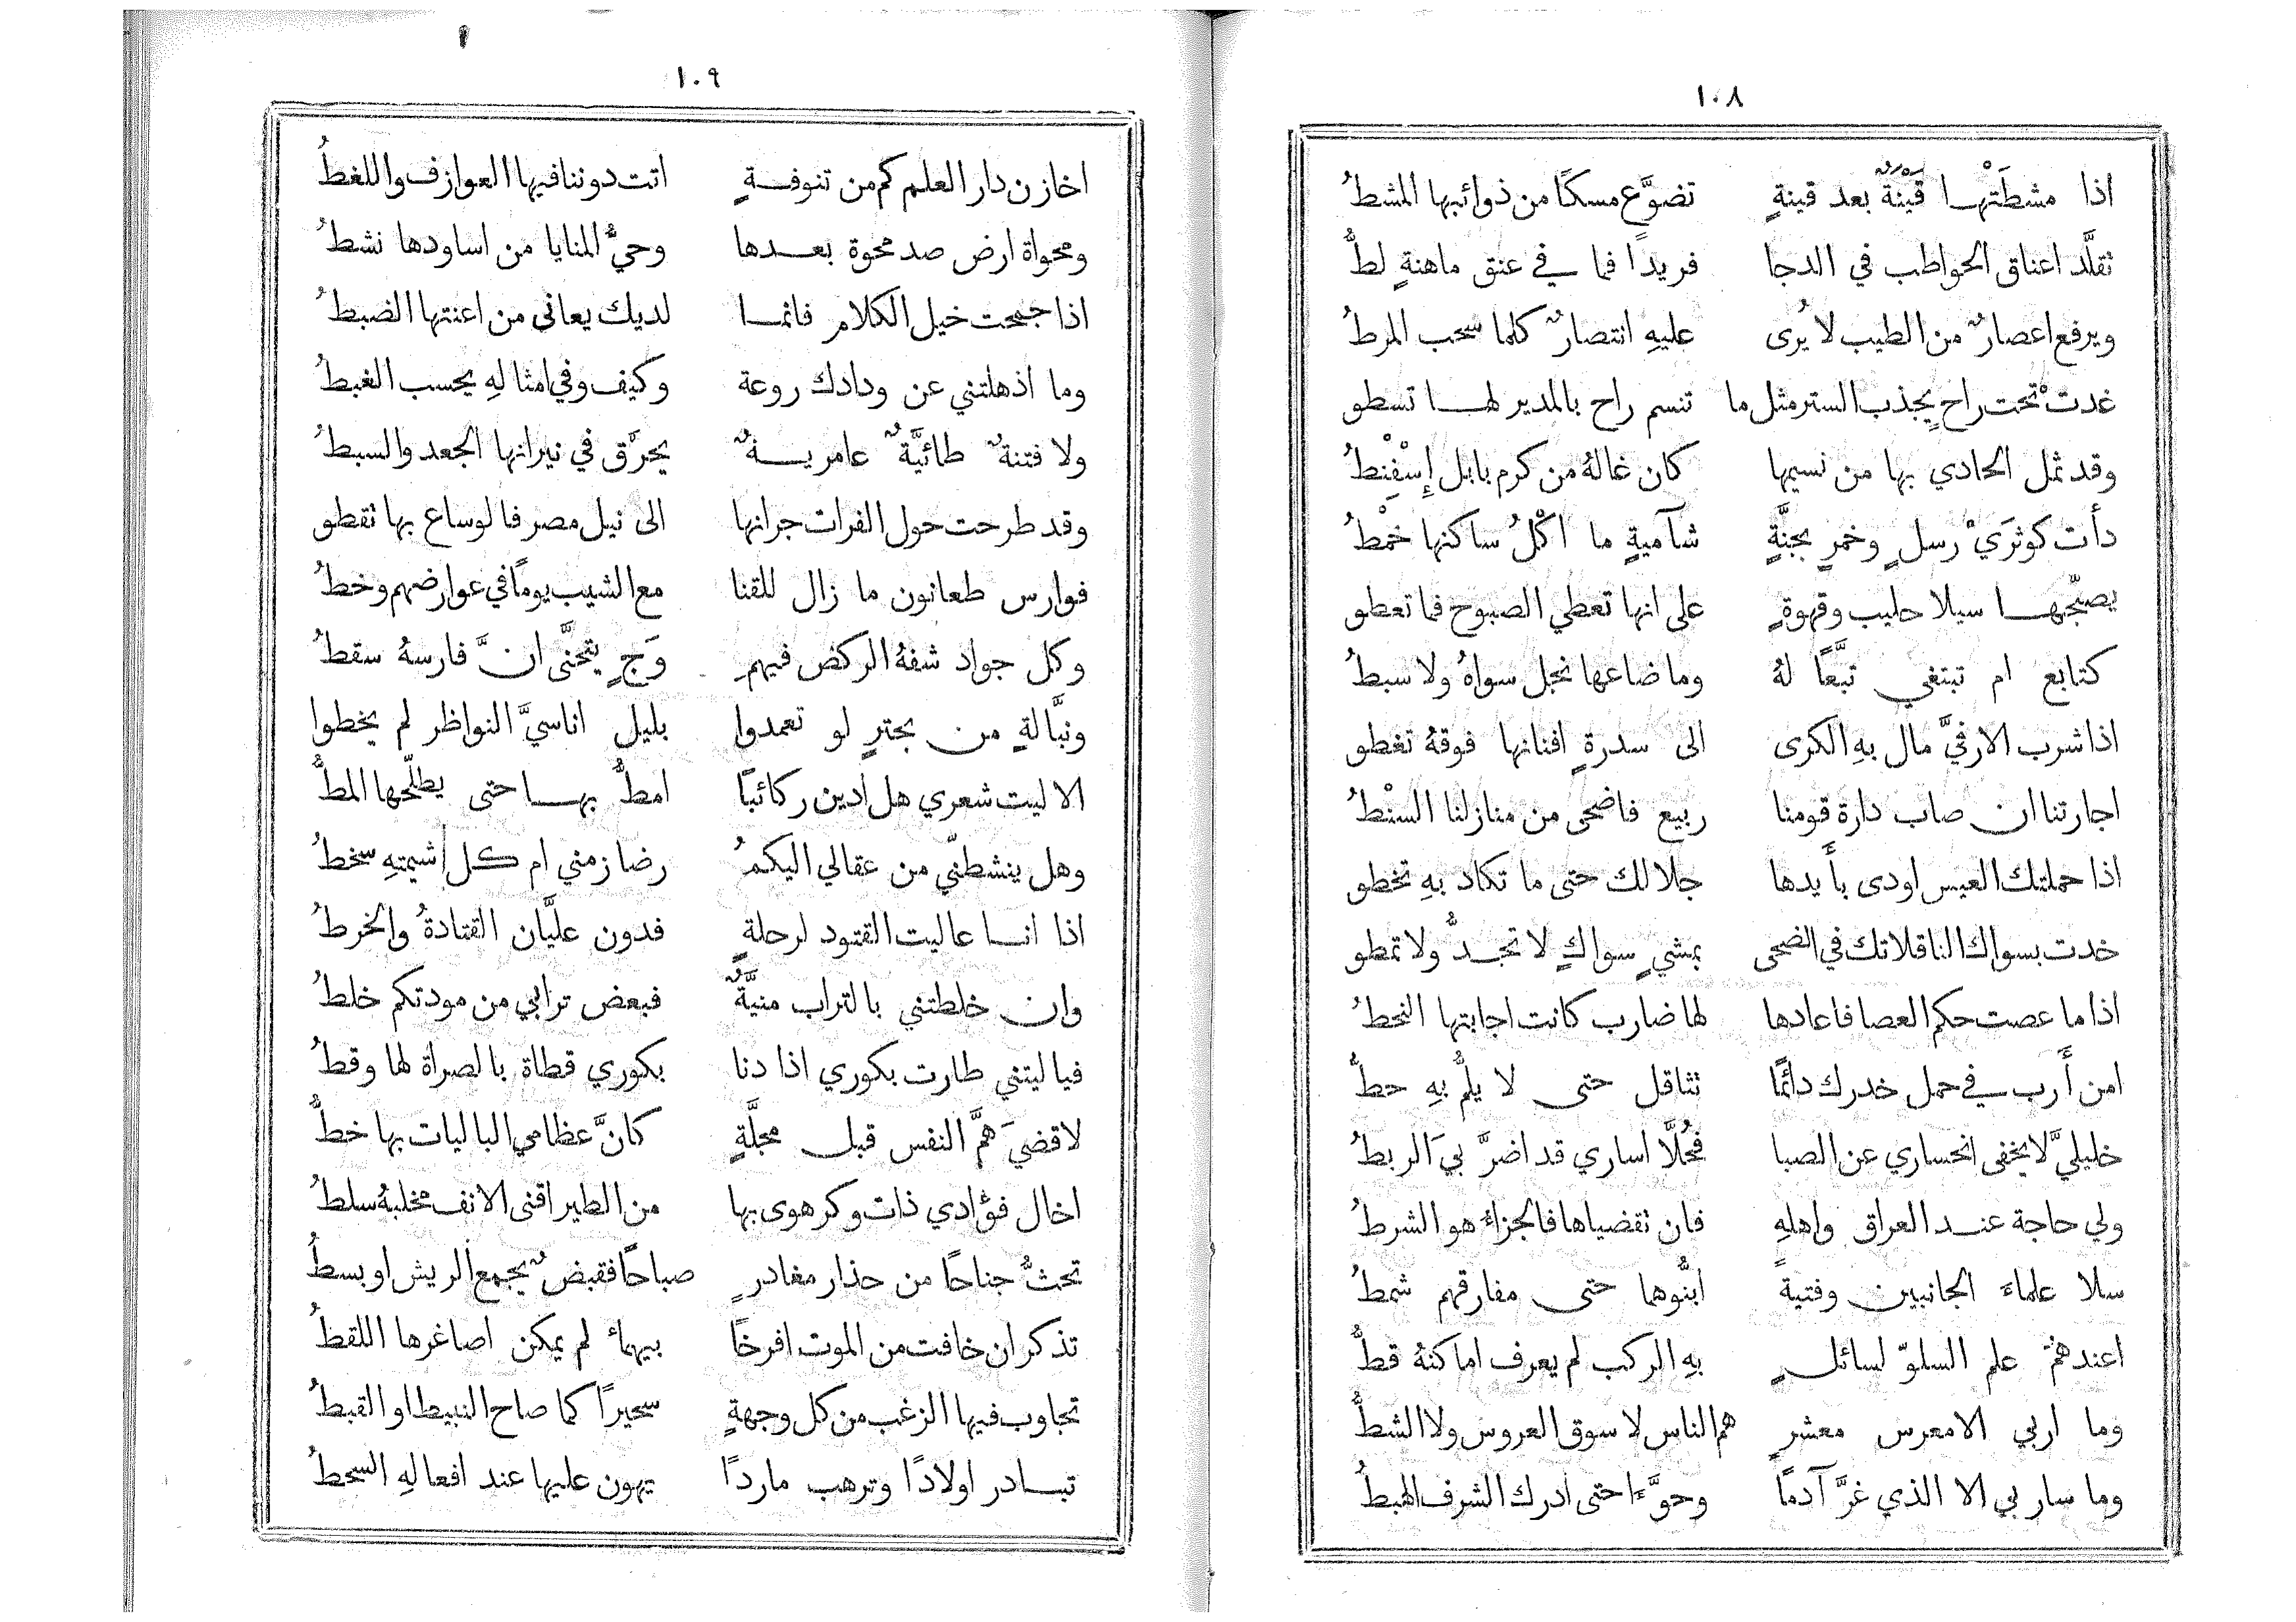 ١٠٨
اذا مشطَتْها قَينةٌ بعد قينةٍ تضوَّع مسكًا من ذوائبها المشطُ
تقلَّد اعناق الحواطب في الدجا فريدًا فما في عنق ماهنةٍ لطُّ
ويرفع اعصارٌ من الطيب لا يُرى عليهِ انتصارٌ كلما سحب المرطُ
غدتْ تحت راحٍ يجذب الستر مثل ما تنسم راح بالمدير لها تسطو
وقد ثمل الحادي بها من نسيمها كان غالهُ من كرم بابل إِسْفِنْطُ
دأت كوثرَيْ رسلٍ وخمرٍ بجنَّةٍ شآميةٍ ما اكْلُ ساكنها خمْطُ
يصبّحها سيلا حليب وقهوةٍ على انها تعطي الصبوح فما تعطو
كتابع ام تبتغي تبَّعًا لهُ وما ضاعها نجل سواهُ ولا سبطُ
اذا شرب الارفيَّ مال بهِ الكرى الى سدرةٍ افنانها فوقهُ تغطو
اجارتنا ان صاب دارة قومنا ربيع فاضحى من منازلنا السنْطُ
اذا حملتك العيس اودى بأَيدها جلالك حتى ما تكاد بهِ تخطو
خدت بسواك الناقلاتك في الضحى بمشيٍ سواكٍ لا تجدُّ ولا تمطو
اذا ما عصت حكم العصا فاعادها لها ضارب كانت اجابتها النحطُ
امن أَرب في حمل خدرك دائمًا تثاقل حتى لا يلمُّ بهِ حطُّ
خليليَّ لا يخفى انحساري عن الصبا فحُلَّا اساري قد اضرَّ بيَ الربطُ
ولي حاجة عند العراق واهلهِ فان تقضياها فالجزاءُ هو الشرطُ
سلا علماءَ الجانبين وفتيةً ابنُّوهما حتى مفارقهم شمطُ
اعندهمُ علم السلوّ لسائلٍ بهِ الركب لم يعرف اماكنهُ قطُّ
وما اربي الا معرس معشرٍ هم الناس لا سوق العروس ولا الشطُّ
وما سار بي الا الذي غرَّ آدمًا وحوَّاءَ حتى ادرك الشرف الهبطُ
١٠٩
اخازن دار العلم كم من تنوفةٍ اتت دوننا فيها العوازف واللغطُ
ومحواة ارض صد محوة بعدها وحيُّ المنايا من اساودها نشطُ
اذا جمحت خيل الكلام فانما لديك يعانى من اعنتها الضبطُ
وما اذهلتني عن ودادك روعة وكيف وفي امثالهِ يحسب الغبطُ
ولا فتنةٌ طائيَّةٌ عامريةٌ يحرَّق في نيرانها الجعد والسبطُ
وقد طرحت حول الفرات جرانها الى نيل مصر فالوساع بها تقطو
فوارس طعانون ما زال للقنا مع الشيب يومًا في عوارضهم وخطُ
وكل جواد شفهُ الركض فيهم وَجٍ يتمنَّى انَّ فارسهُ سقطُ
ونبَّالةٍ من بحترٍ لو تعمدوا بليل اناسيَّ النواظر لم يخطوا
الا ليت شعري هل ادين ركائبًا امطُّ بها حتى يطلّحها المطُّ
وهل ينشطنّي من عقالي اليكمُ رضا زمني ام كل اشيمتهِ سخطُ
اذا انا عاليت القتود لرحلةٍ فدون عليَّان القتادةُ والخرطُ
وان خلطتني بالتراب منيَّةٌ فبعض ترابي من مودتكم خلطُ
فيا ليتني طارت بكوري اذا دنا بكوري قطاة بالصراة لها وقطُ
لاقضيَ همَّ النفس قبل محلَّةٍ كانَّ عظامي الباليات بها خطُّ
اخال فؤادي ذات وكر هوى بها من الطير اقنى الانف مخلبهُ سلطُ
تحثُّ جناحًا من حذار مغادرٍ صباحًا فقبضٌ يجمع الريش او بسطُ
تذكر ان خافت من الموت افرخًا بيهماءَ لم يمكن اصاغرها اللقطُ
تجاوب فيها الزغب من كل وجهةٍ سحيرًا كما صاح النبيط او القبطُ
تبادر اولادًا وترهب ماردًا يهون عليها عند افعالهِ السحطُ